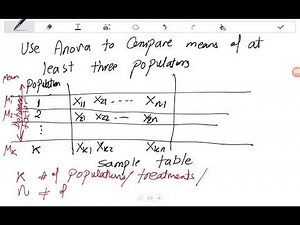 Use Anova to Compare means of at
least three populations
Mean
Population
M1 1 X11 X21 ---- Xn1
M2 2 X21 X22 --- X2n
MK K XK1 XK2 XKn
sample table
K # of populations/treatments/
n # of